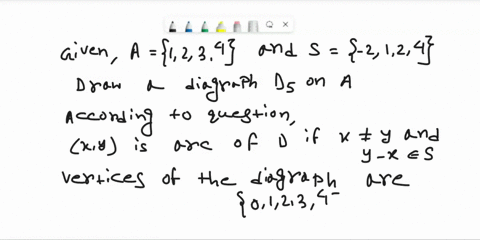 Given, A = {1,2,3,4} and S = {-2,1,2,4}
Draw a diagraph D5 on A
According to question,
(x,y) is arc of D if x ≠ y and
y-x ∈ S
vertices of the diagraph are
{0,1,2,3,4